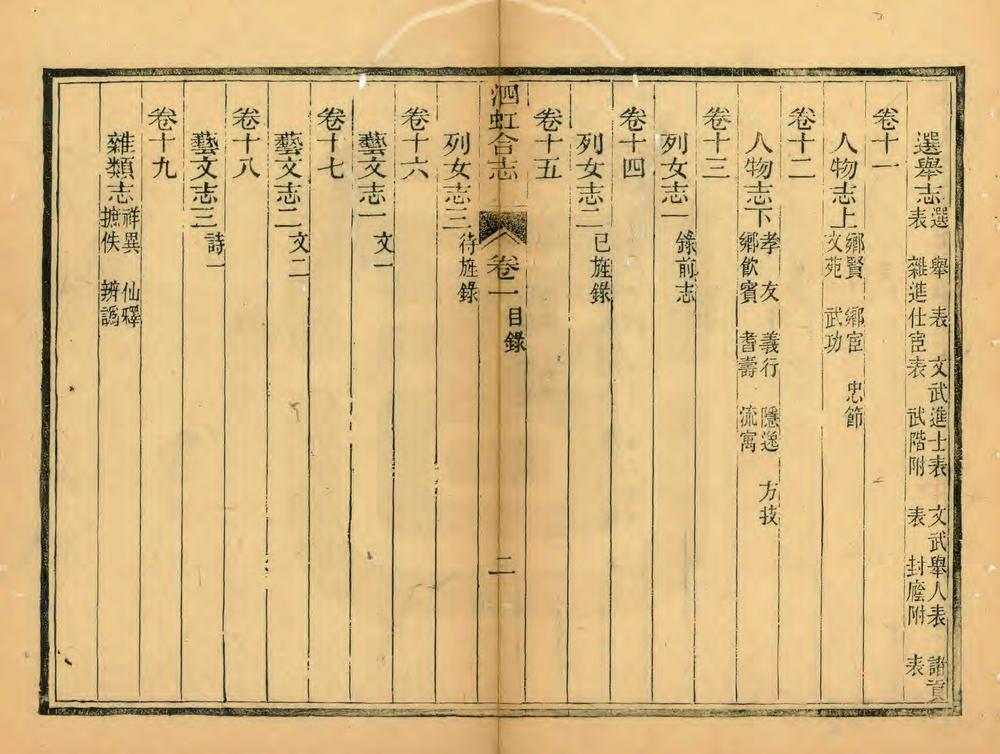 選舉志 選舉表 文武進士表 文武舉人表 諸貢
表 雜進仕宦表 武階附表 封廕附表
卷十一
人物志上 鄉賢 鄉宦 忠節
文苑 武功
卷十二
人物志下 孝友 義行 隱逸 方技
鄉飲賓 耆壽 流寓
卷十三
列女志一 錄前志
卷十四
列女志二 已旌錄
卷十五
泗虹合志 卷一 目錄 二
列女志三 待旌錄
卷十六
藝文志一 文一
卷十七
藝文志二 文二
卷十八
藝文志三 詩一
卷十九
雜類志 祥異 仙釋
摭佚 辨譌